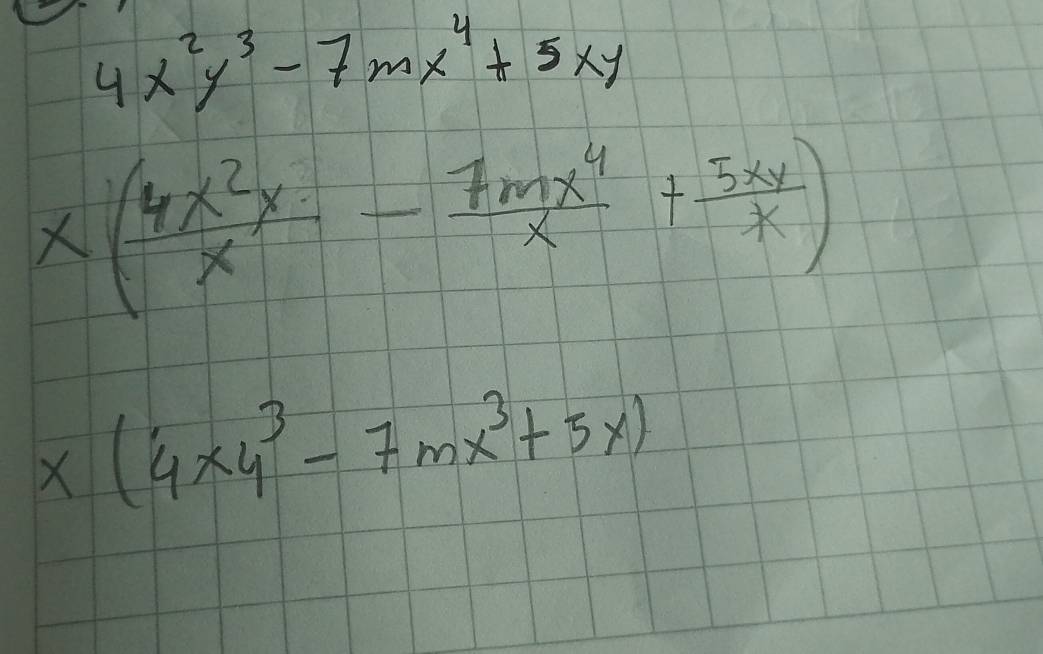 4x²y³ - 7mx⁴ + 5xy
x (4x²y/x - 7mx⁴/x + 5xy/x)
x (4xy³ - 7mx³ + 5y)